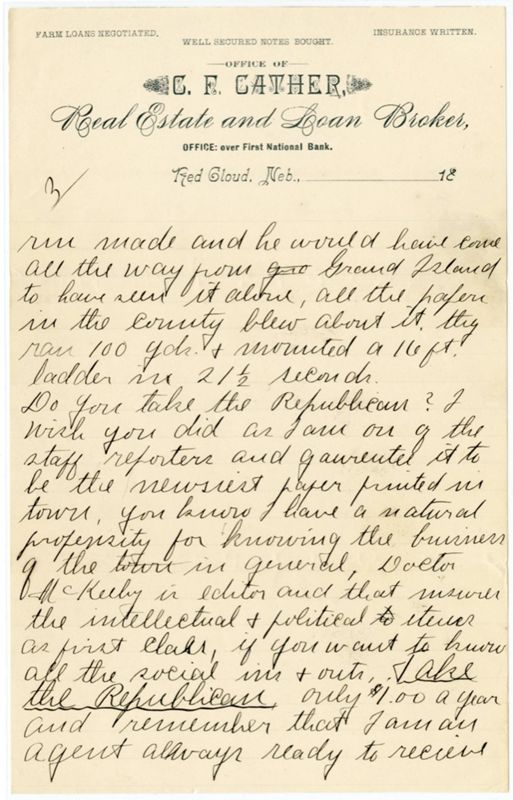 FARM LOANS NEGOTIATED.
WELL SECURED NOTES BOUGHT.
INSURANCE WRITTEN.
OFFICE OF
C. F. CATHER,
Real Estate and Loan Broker,
OFFICE: over First National Bank.
Red Cloud, Neb., 18
3
run made and he would have come
all the way from Grand Island
to have seen it alone, all the papers
in the county blew about it. they
ran 100 yds. & mounted a 16 ft.
ladder in 21½ seconds.
Do you take the Republican? I
wish you did as I am on of the
staff reporters and gaurentee it to
be the newsiest paper printed in
town, you know I have a natural
propensity for knowing the buisness
of the town in general, Doctor
McKeeby is editor and that insures
the intellectual & political items
as first class, if you want to know
all the social ins & outs, Take
the Republican, only $1.00 a year
and remember that I am an
agent always ready to recieve